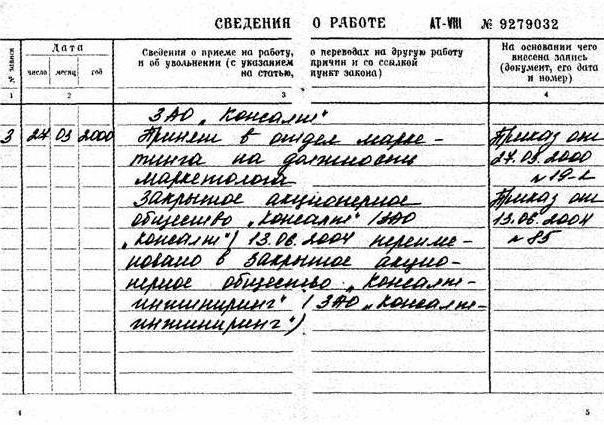 СВЕДЕНИЯ О РАБОТЕ АТ-VIII № 9279032
№ записи
Дата
число месяц год
Сведения о приеме на работу, о переводах на другую работу
и об увольнении (с указанием причин и со ссылкой
на статью, пункт закона)
На основании чего
внесена запись
(документ, его дата
и номер)
1 2 3 4
ЗАО „Консалт"
3 27 03 2000 Принят в отдел марке- Приказ от
тинга на должность 27.03.2000
маркетолога № 19-к
Закрытое акционерное Приказ от
общество „Консалт" (ЗАО 13.06.2004
„Консалт") 13.06.2004 переиме- № 85
новано в Закрытое акцио-
нерное общество „Консалт-
инжиниринг" (ЗАО „Консалт-
инжиниринг")
4 5